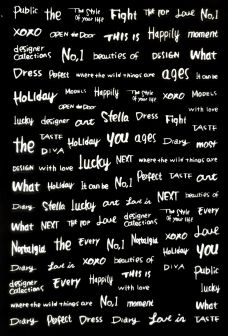 Public the The Style of your life Fight THE POP Love No,1
XOXO OPEN the DOOR THIS IS Happily moment
designer Collections No,1 beauties of DESIGN What
Dress Perfect where the wild things are ages It can be
Holiday MODELS Happily The Style of your life XOXO MODELS
OPEN the DOOR with love
lucky designer ant Stella Dress Fight
TASTE
the TASTE Holiday you ages Diary most
DIVA
DESIGN with love lucky NEXT where the wild things are
What Holiday It can be No,1 Perfect TASTE ant
Diary Stella lucky ant Love is NEXT beauties of
What NEXT THE POP Love designer Collections The Style of your life Every
Nostalgia the Every No,1 Nostalgia XOXO Love Holiday
Diary Love is XOXO Diary The Style of your life you
DIVA
designer Collections Every Happily THIS IS with love Public
lucky
where the wild things are No,1 moment What
Diary Perfect Dress Diary Love is TASTE